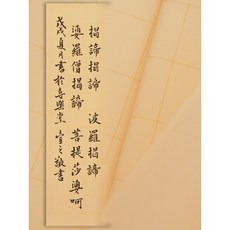 揭諦揭諦 波羅揭諦
婆羅僧揭諦 菩提莎婆呵
戊戌夏月書於樂堂 之敬書